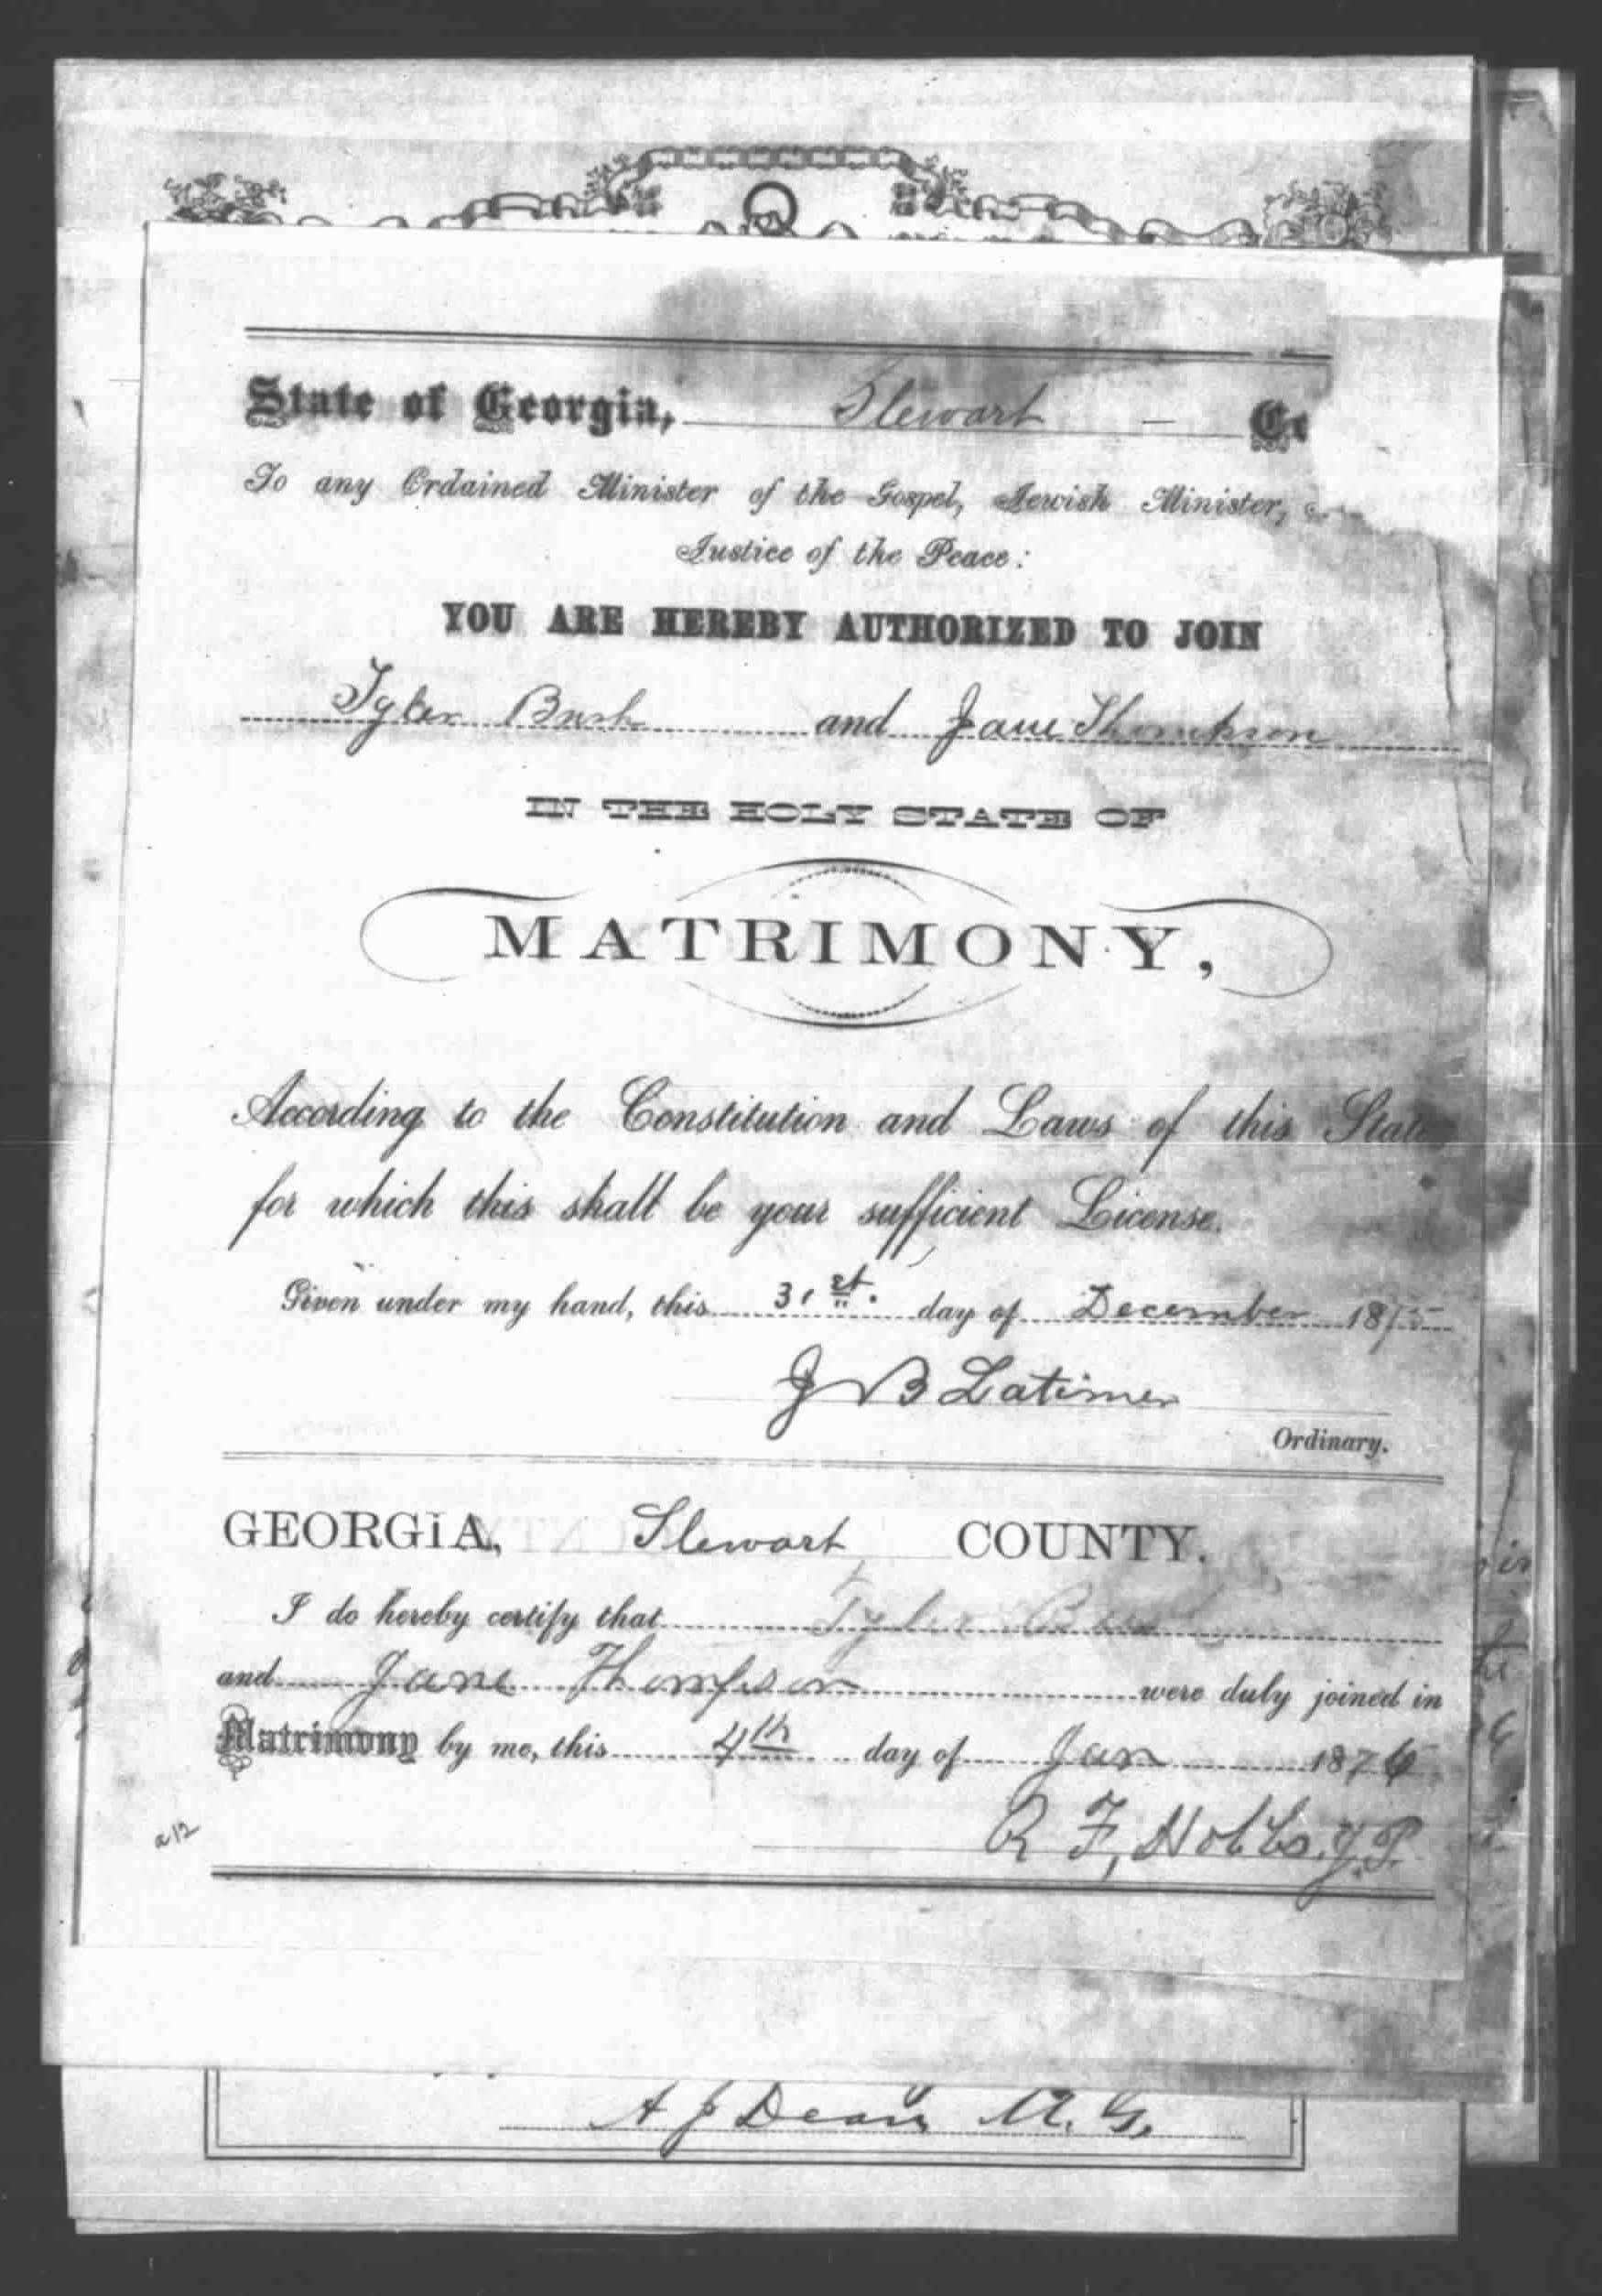 State of Georgia, Stewart — Co
To any Ordained Minister of the Gospel, Jewish Minister,
Justice of the Peace:
YOU ARE HEREBY AUTHORIZED TO JOIN
Tyler Bush and Jane Thompson
IN THE HOLY STATE OF
MATRIMONY,
According to the Constitution and Laws of this State
for which this shall be your sufficient License.
Given under my hand, this 31st. day of December 1875
J B Latimer
Ordinary.
GEORGIA, Stewart COUNTY.
I do hereby certify that Tyler Bush
and Jane Thompson were duly joined in
Matrimony by me, this 4th day of Jan 1876
R F, Hobbs. J.P.
A J Dean M. G.